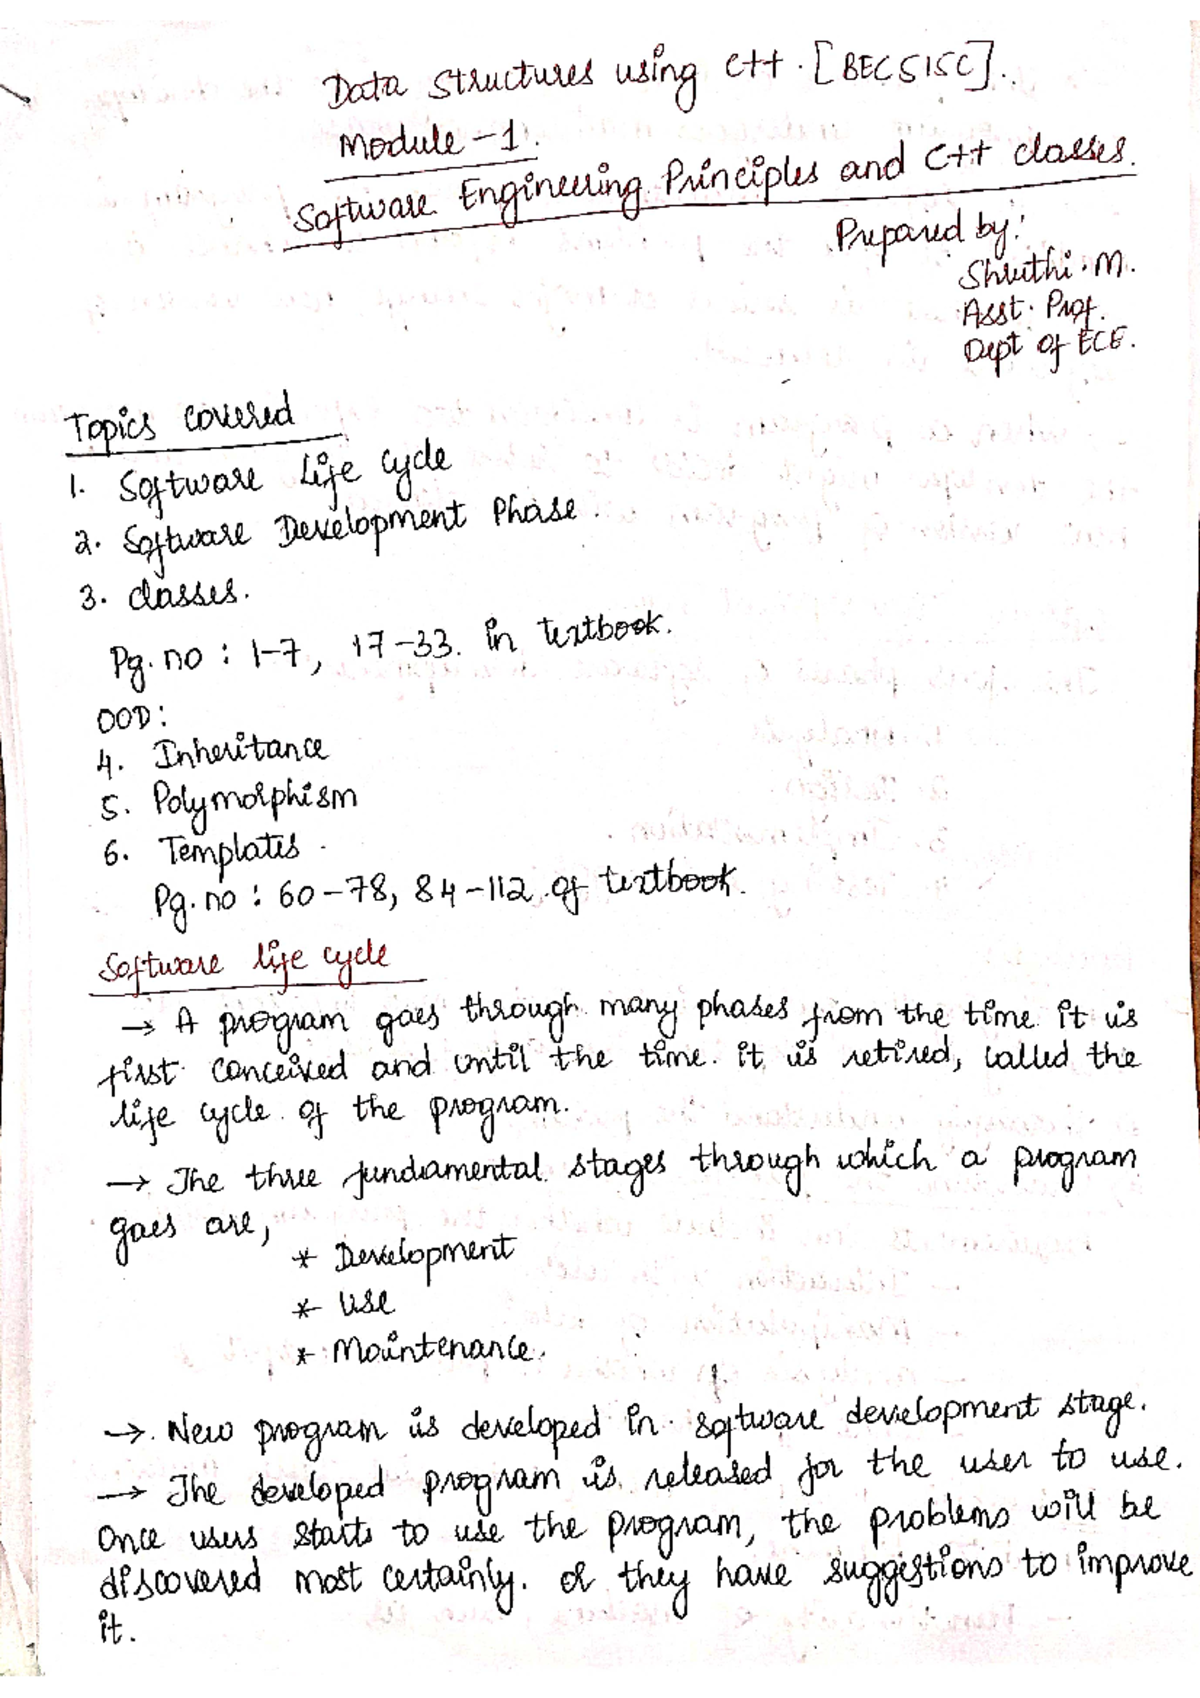 Data Structures using C++. [BEC515C].
Module - 1.
Software Engineering Principles and C++ classes.
Prepared by:
Shruthi. M.
Asst. Prof.
Dept of ECE.
Topics covered
1. Software Life Cycle
2. Software Development Phase.
3. classes.
Pg. no : 1-7, 17-33. in textbook.
OOD:
4. Inheritance
5. Polymorphism
6. Templates.
Pg. no : 60-78, 84-112 of textbook.
Software life cycle
→ A program goes through many phases from the time it is
first conceived and until the time it is retired, called the
life cycle of the program.
→ The three fundamental stages through which a program
goes are,
* Development
* Use
* Maintenance.
→ New program is developed in software development stage.
→ The developed program is released for the user to use.
Once users starts to use the program, the problems will be
discovered most certainly. or they have suggestions to improve
it.